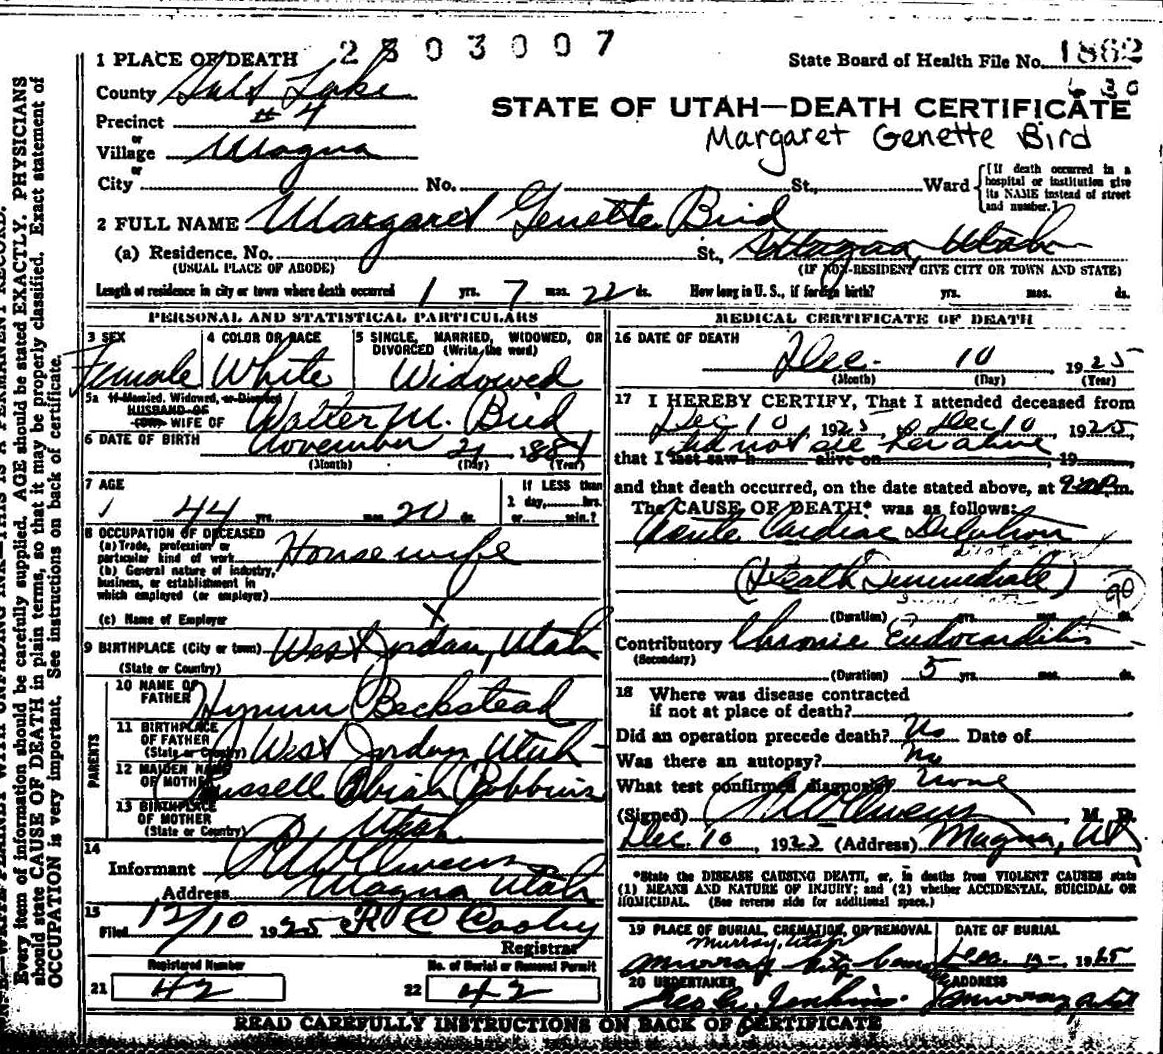 1 PLACE OF DEATH 2503007
State Board of Health File No. 1862
County Salt Lake
630
Precinct #4
STATE OF UTAH—DEATH CERTIFICATE
Margaret Genette Bird
or
Village Magna
or
City No. St., Ward
(If death occurred in a hospital or institution give its NAME instead of street and number.)
2 FULL NAME Margaret Genette Bird
(a) Residence. No. St., Magna, Utah
(USUAL PLACE OF ABODE) (IF NON-RESIDENT GIVE CITY OR TOWN AND STATE)
Length of residence in city or town where death occurred 1 yrs. 7 mos. 22 ds. How long in U. S., if foreign birth? yrs. mos. ds.
PERSONAL AND STATISTICAL PARTICULARS
3 SEX Female
4 COLOR OR RACE White
5 SINGLE, MARRIED, WIDOWED, OR DIVORCED (Write the word) Widowed
5a If Married, Widowed, or Divorced
HUSBAND OF
(or) WIFE OF Walter M. Bird
6 DATE OF BIRTH November 21 1881
(Month) (Day) (Year)
7 AGE 44 yrs. mos. 20 ds.
If LESS than
1 day, hrs.
or min.?
8 OCCUPATION OF DECEASED
(a) Trade, profession or particular kind of work Housewife
(b) General nature of industry, business, or establishment in which employed (or employer)
(c) Name of Employer X
9 BIRTHPLACE (City or town) West Jordan, Utah
(State or Country)
PARENTS
10 NAME OF FATHER Hyrum Beckstead
11 BIRTHPLACE OF FATHER West Jordan Utah
(State or Country)
12 MAIDEN NAME OF MOTHER Russell Robbins
13 BIRTHPLACE OF MOTHER Utah
(State or Country)
14
Informant
Address Magna Utah
15
Filed 12/10 1925
Registrar
Registered Number
21 42
No. of Burial or Removal Permit
22 42
MEDICAL CERTIFICATE OF DEATH
16 DATE OF DEATH Dec. 10 1925
(Month) (Day) (Year)
17 I HEREBY CERTIFY, That I attended deceased from
Dec 10, 1925, to Dec 10, 1925,
did not see her alive
that I last saw h alive on , 19
and that death occurred, on the date stated above, at 9:00 P.m.
The CAUSE OF DEATH* was as follows:
Acute Cardiac Dilation
(Death Immediate)
90
(Duration) yrs. mos. ds.
Contributory Chronic Endocarditis
(Secondary)
(Duration) 5 yrs. mos. ds.
18 Where was disease contracted
if not at place of death?
Did an operation precede death? No Date of
Was there an autopsy? No
What test confirmed diagnosis? None
(Signed) M. D.
Dec. 10 (Address) Magna, Ut
*State the DISEASE CAUSING DEATH, or, in deaths from VIOLENT CAUSES state
(1) MEANS AND NATURE OF INJURY; and (2) whether ACCIDENTAL, SUICIDAL OR
HOMICIDAL. (See reverse side for additional space.)
19 PLACE OF BURIAL, CREMATION, OR REMOVAL
Murray, Utah
Murray City Cem
DATE OF BURIAL
Dec. 1925
20 UNDERTAKER
Jenkins
ADDRESS
Murray Utah
READ CAREFULLY INSTRUCTIONS ON BACK OF CERTIFICATE
WRITE PLAINLY WITH UNFADING INK—THIS IS A PERMANENT RECORD.
Every item of information should be carefully supplied. AGE should be stated EXACTLY. PHYSICIANS
should state CAUSE OF DEATH in plain terms, so that it may be properly classified. Exact statement of
OCCUPATION is very important. See instructions on back of certificate.